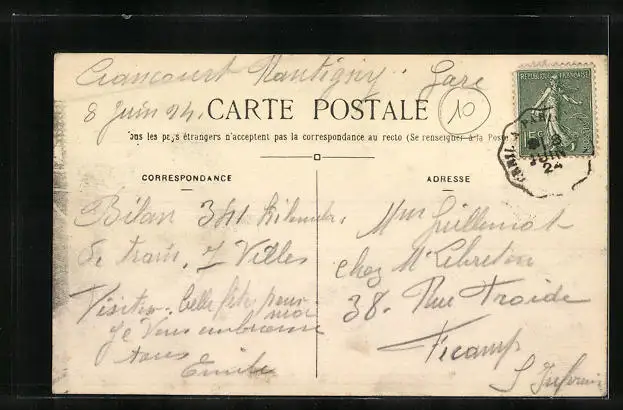 Crancourt Mantigny. Gare
8 Juin 24.
CARTE POSTALE
10
RÉPUBLIQUE FRANÇAISE
15c
Tous les pays étrangers n'acceptent pas la correspondance au recto (Se renseigner à la Poste
8 JUIN 24
CORRESPONDANCE
ADRESSE
Bilan 341 kilomètres
de train, 7 Villes
Visiter. belle fête pour moi
Je Vous embrasse
tous
Emile
Mme Guillemot
chez Mr Lebreton
38. Rue Froide
Fecamp
S Inférieure